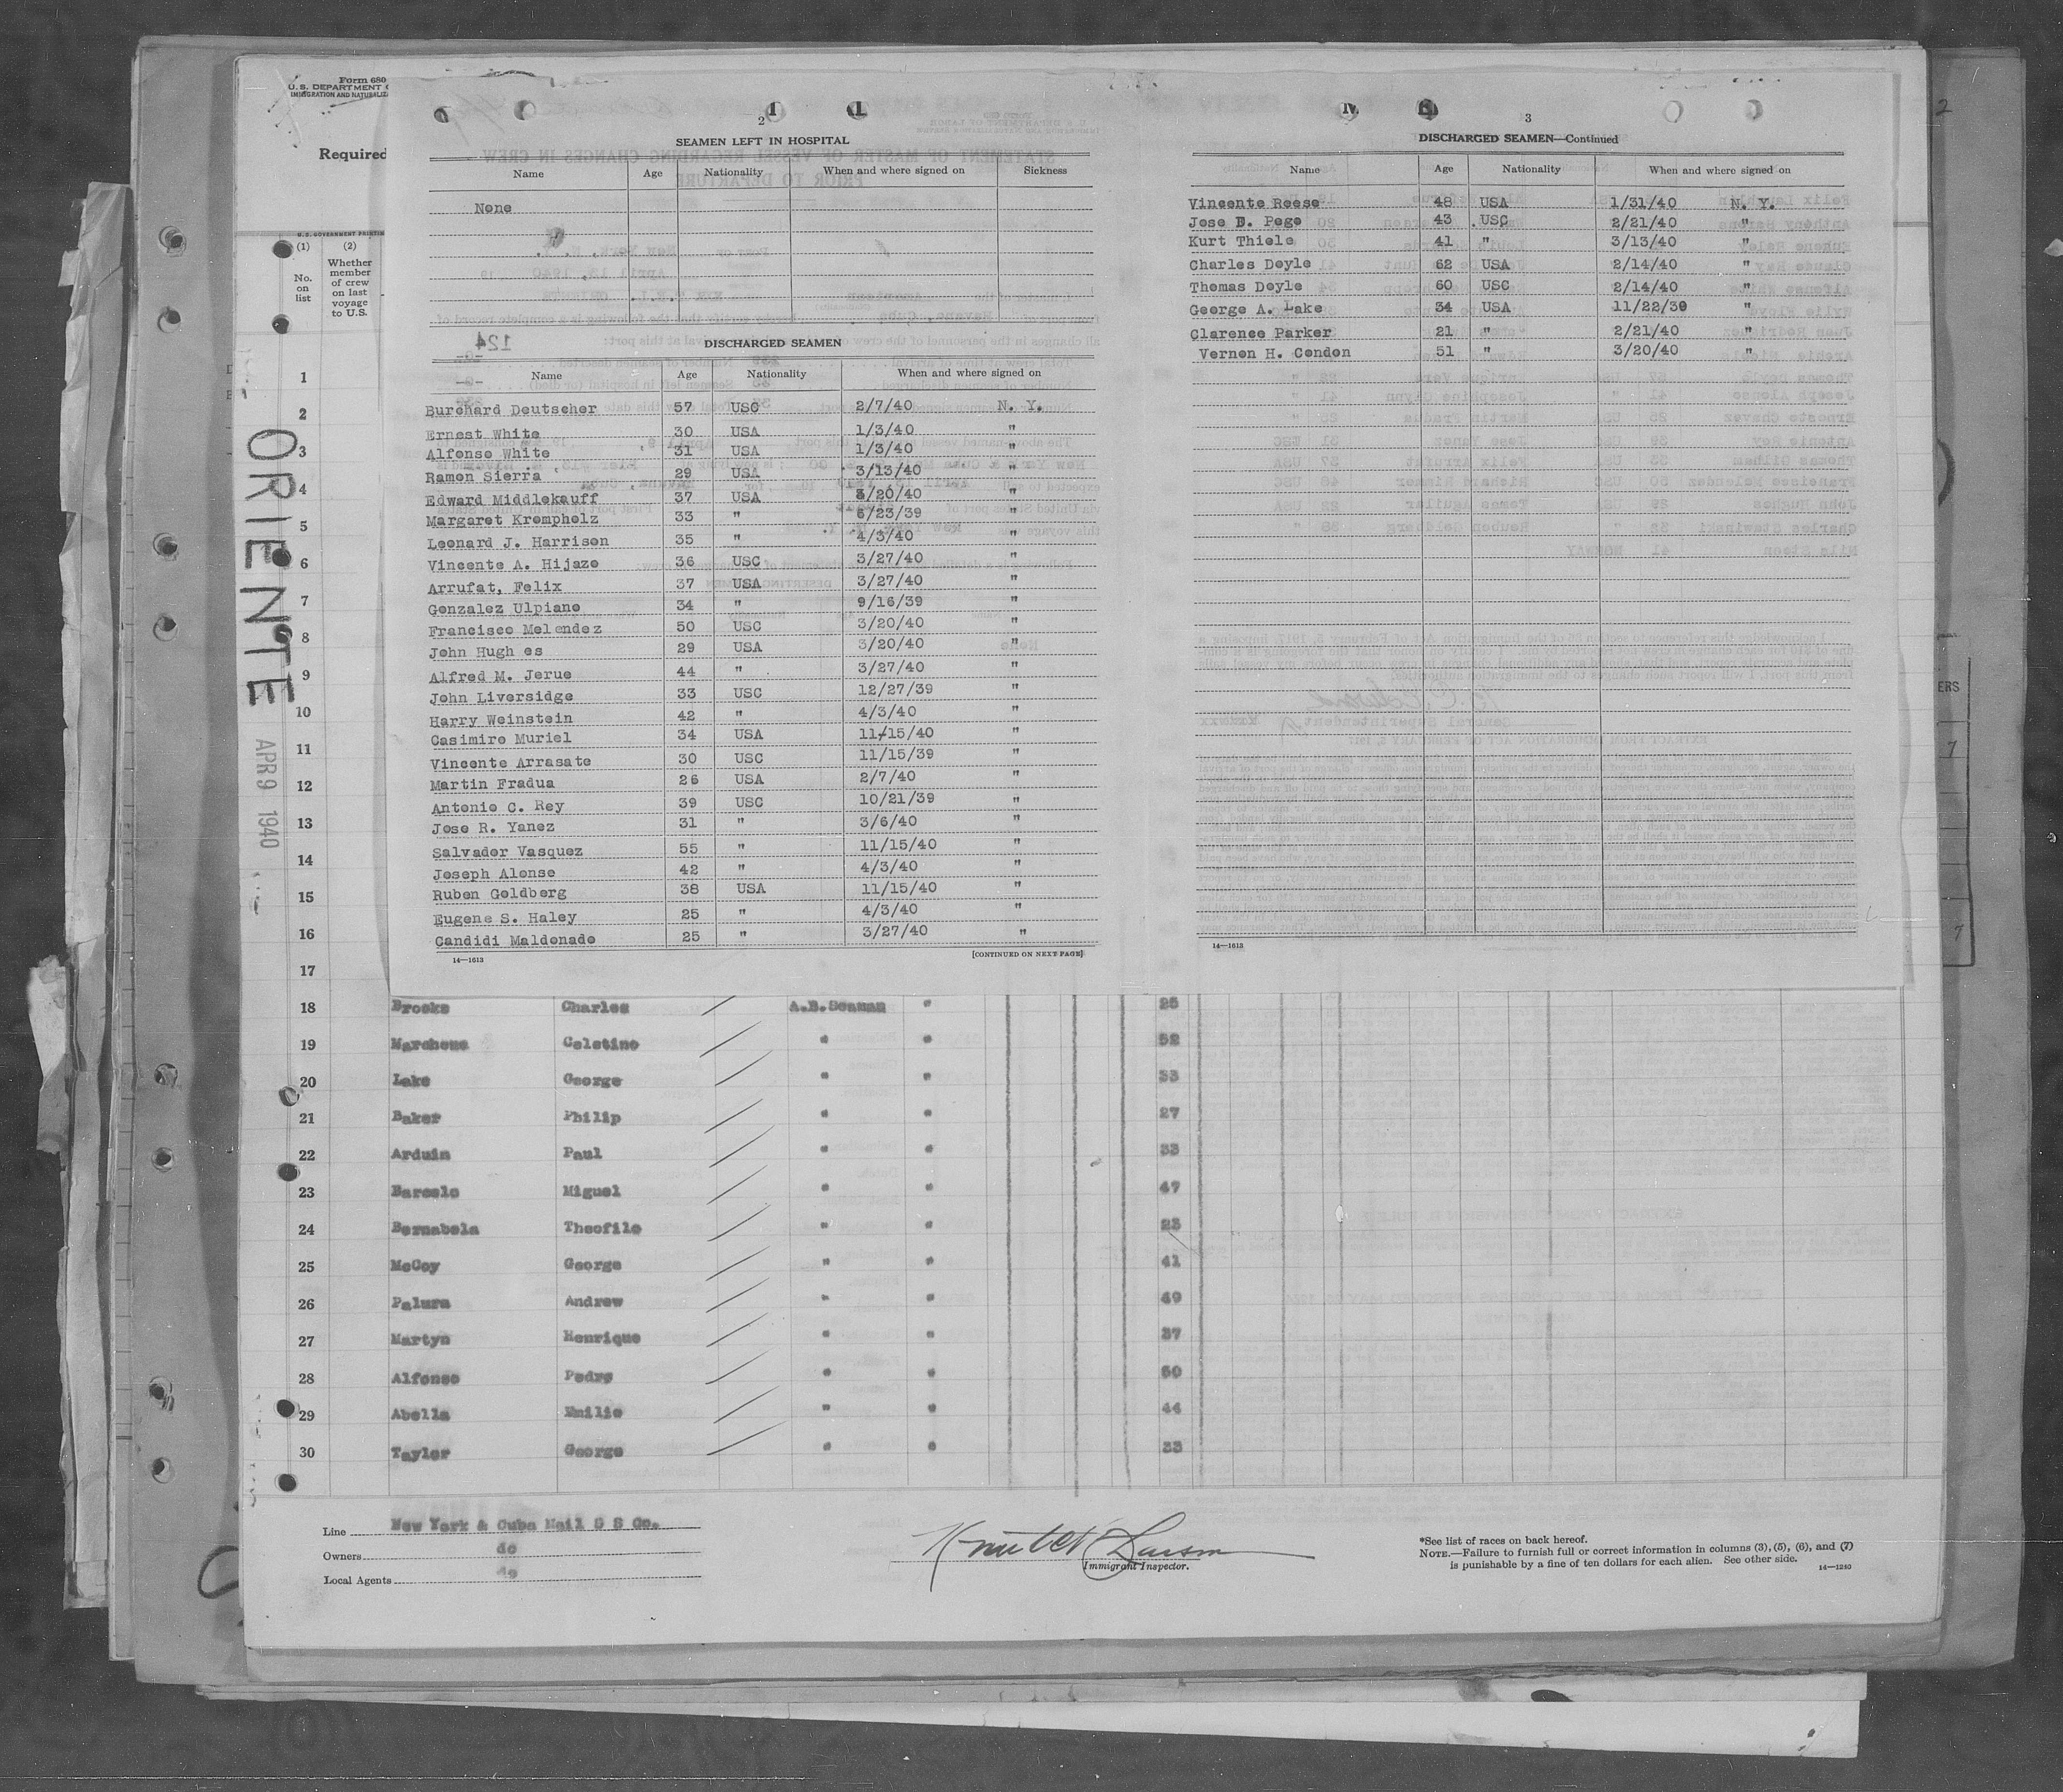 Form 680
U.S. DEPARTMENT
IMMIGRATION AND
Required
(1) (2)
No. on list
Whether member of crew on last voyage to U.S.
ORIENTE
APR 9 1940
2
SEAMEN LEFT IN HOSPITAL
Name Age Nationality When and where signed on Sickness
None
DISCHARGED SEAMEN
Name Age Nationality When and where signed on
Burchard Deutscher 57 USC 2/7/40 N. Y.
Ernest White 30 USA 1/3/40 "
Alfonso White 31 USA 1/3/40 "
Ramon Sierra 29 USA 3/13/40 "
Edward Middlekauff 37 USA 3/20/40 "
Margaret Krempholz 33 " 6/23/39 "
Leonard J. Harrison 35 " 4/3/40 "
Vincente A. Hijazo 36 USC 3/27/40 "
Arrufat, Felix 37 USA 3/27/40 "
Gonzalez Ulpiano 34 " 9/16/39 "
Francisco Melendez 50 USC 3/20/40 "
John Hugh es 29 USA 3/20/40 "
Alfred M. Jerue 44 " 3/27/40 "
John Liversidge 33 USC 12/27/39 "
Harry Weinstein 42 " 4/3/40 "
Casimiro Muriel 34 USA 11/15/40 "
Vincente Arrasate 30 USC 11/15/39 "
Martin Fradua 26 USA 2/7/40 "
Antonio C. Rey 39 USC 10/21/39 "
Jose R. Yanez 31 " 3/6/40 "
Salvador Vasquez 55 " 11/15/40 "
Joseph Alonso 42 " 4/3/40 "
Ruben Goldberg 38 USA 11/15/40 "
Eugene S. Haley 25 " 4/3/40 "
Candidi Maldonado 25 " 3/27/40 "
14—1613 [CONTINUED ON NEXT PAGE]
3
DISCHARGED SEAMEN—Continued
Name Age Nationality When and where signed on
Vincente Reese 48 USA 1/31/40 N. Y.
Jose B. Pego 43 USC 2/21/40 "
Kurt Thiele 41 " 3/13/40 "
Charles Doyle 62 USA 2/14/40 "
Thomas Doyle 60 USC 2/14/40 "
George A. Lake 34 USA 11/22/39 "
Clarence Parker 21 " 2/21/40 "
Vernon H. Condon 51 " 3/20/40 "
14—1613
1
2
3
4
5
6
7
8
9
10
11
12
13
14
15
16
17
18 Brooks Charles A.B.Seaman " 25
19 Marchena Celetino " " 52
20 Lake George " " 33
21 Baker Philip " " 27
22 Arduin Paul " " 33
23 Barcelo Miguel " " 47
24 Bernabela Theofilo " " 23
25 McCoy George " " 41
26 Palura Andrew " " 49
27 Martyn Henrique " " 37
28 Alfonso Pedro " " 50
29 Abella Emilio " " 44
30 Tayler George " " 33
Line New York & Cuba Mail S S Co.
Owners do
Local Agents do
Immigrant Inspector.
*See list of races on back hereof.
NOTE.—Failure to furnish full or correct information in columns (3), (5), (6), and (7)
is punishable by a fine of ten dollars for each alien. See other side.
14—1240